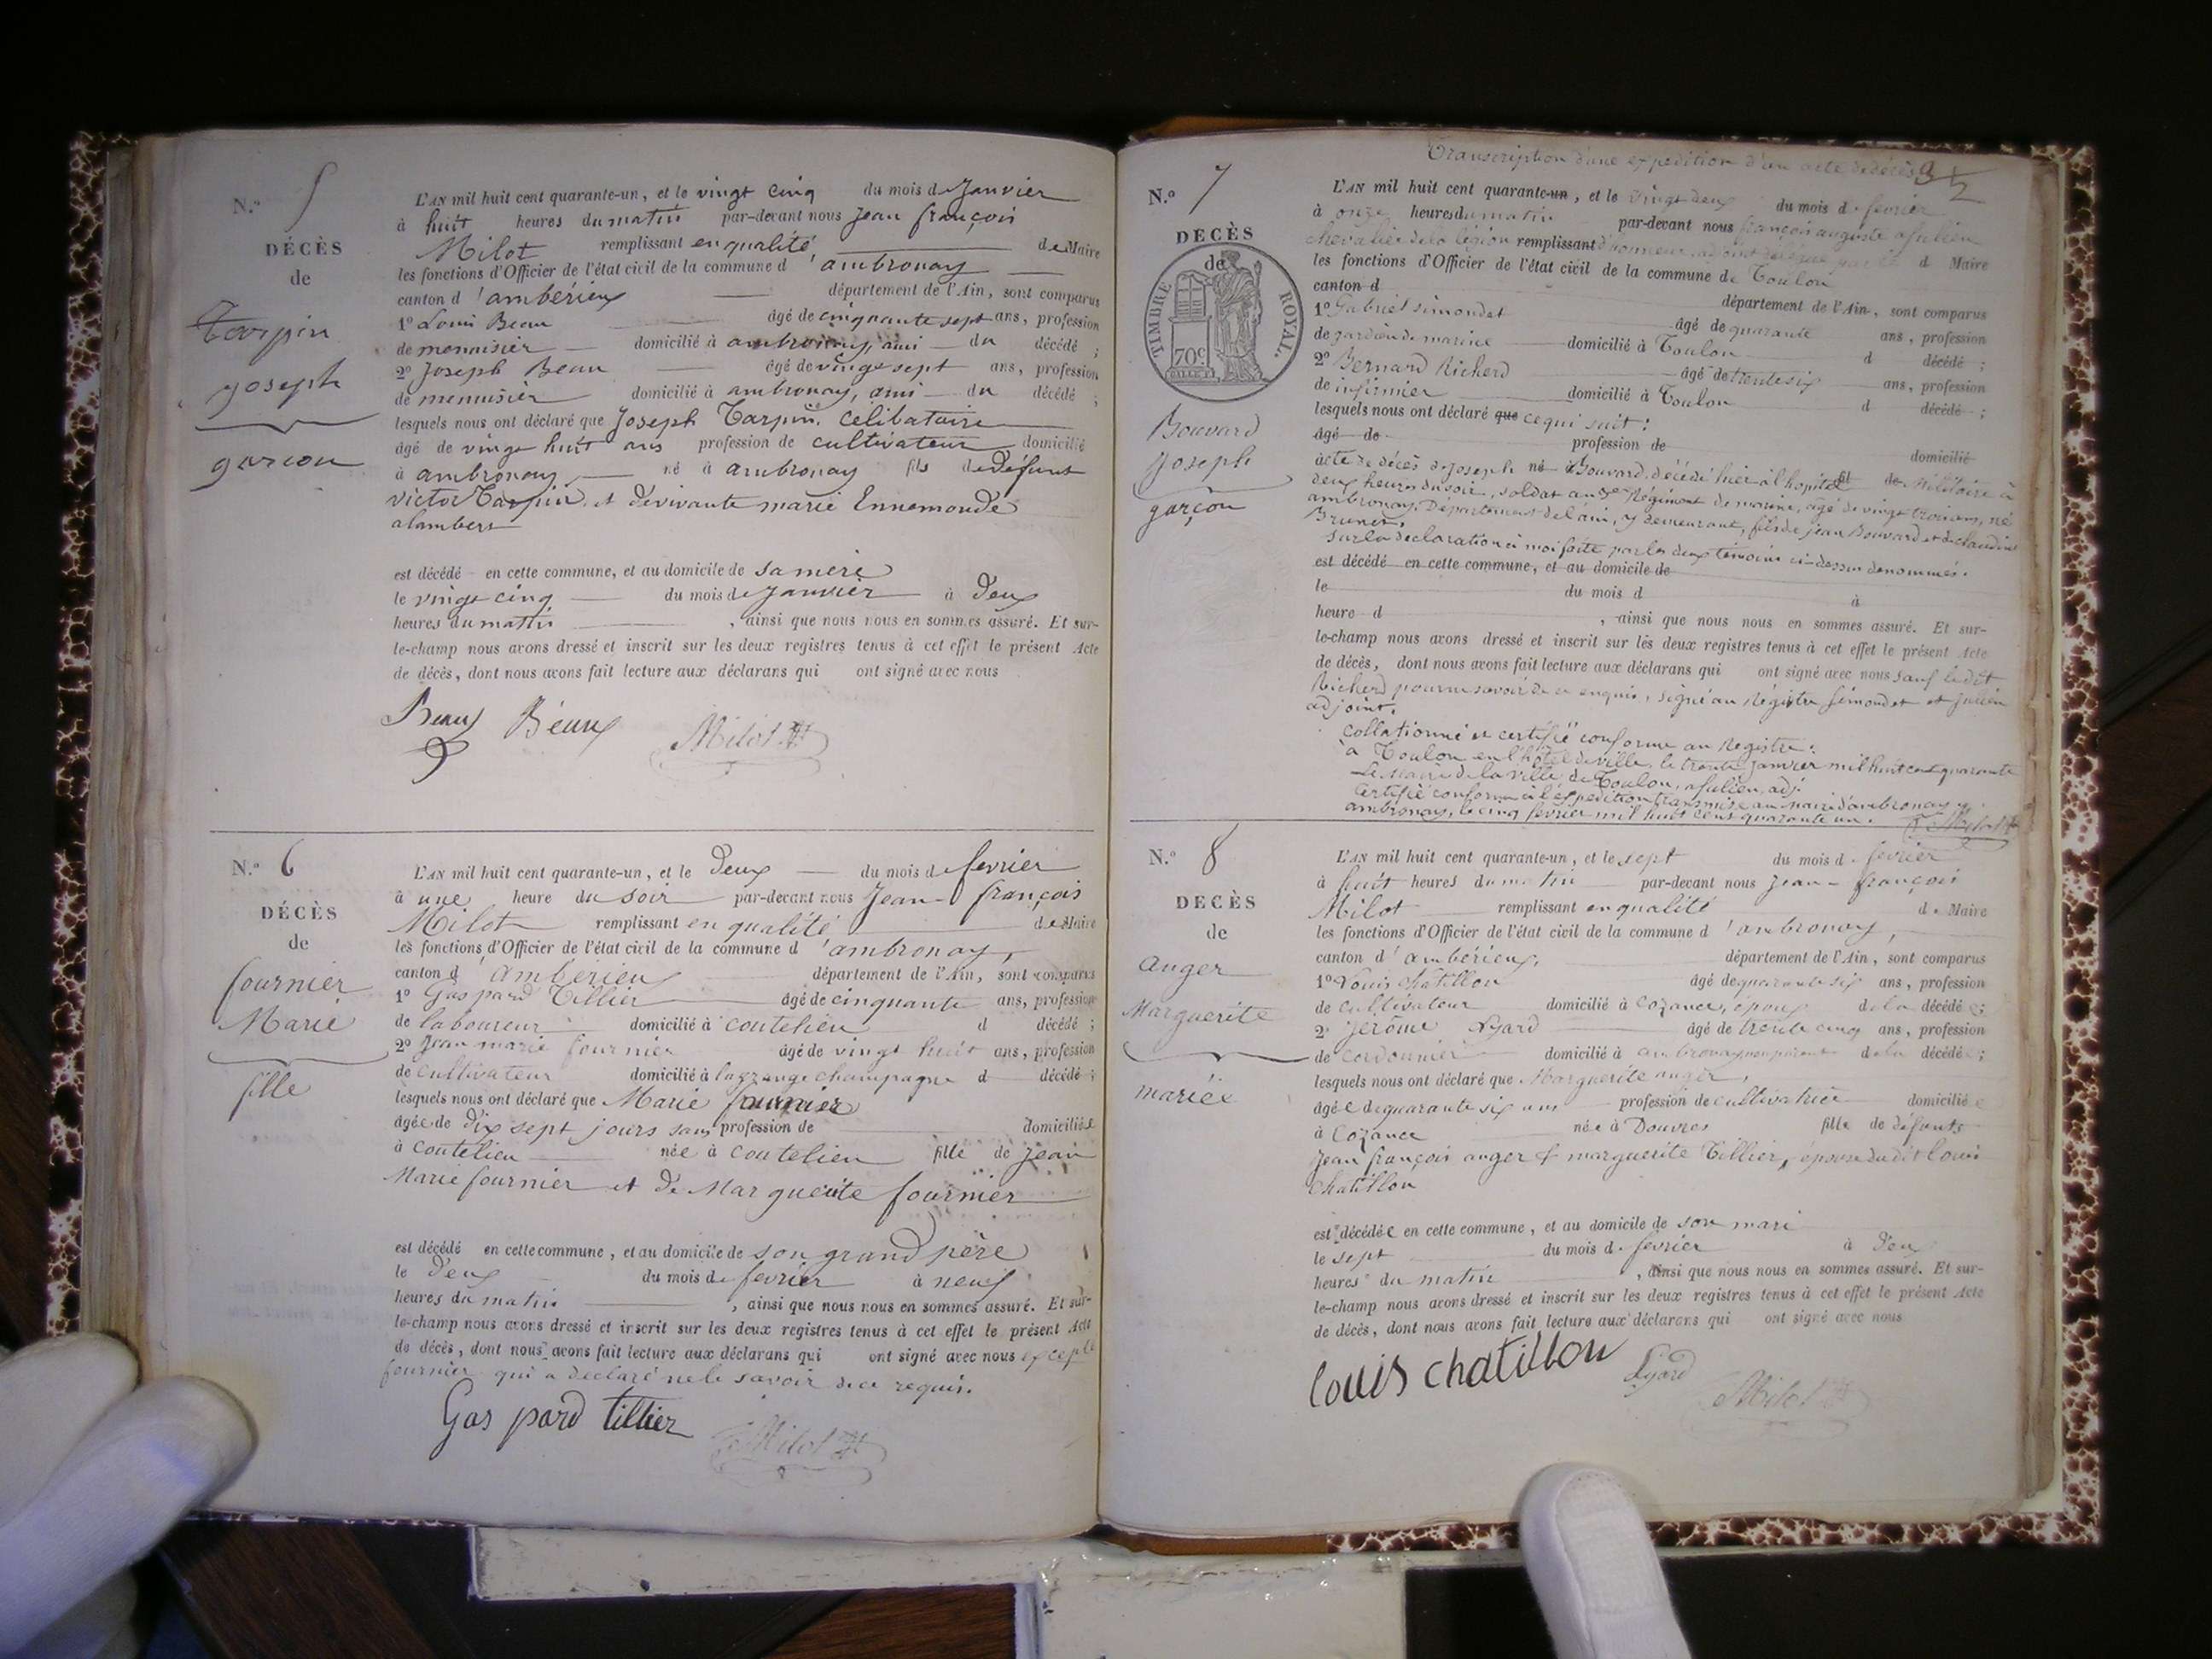 N.º 5
DÉCÈS
de
Tarpin
joseph
garcon
L'AN mil huit cent quarante-un, et le vingt cinq du mois de Janvier
à huit heures du matin par-devant nous Jean françois
Milot remplissant en qualité de Maire
les fonctions d'Officier de l'état civil de la commune d'ambronay
canton d'ambérieux département de l'Ain, sont comparus
1º Louis Beau âgé de cinquante sept ans, profession
de menuisier domicilié à ambronay, ami du décédé ;
2º Joseph Beau âgé de vingt sept ans, profession
de menuisier domicilié à ambronay, ami du décédé ;
lesquels nous ont déclaré que Joseph Tarpin, celibataire
âgé de vingt huit ans profession de cultivateur domicilié
à ambronay né à ambronay fils de défunt
victor Tarpin, et de vivante marie Ennemonde
alambert
est décédé en cette commune, et au domicile de sa mère
le vingt cinq du mois de Janvier à deux
heures du matin, ainsi que nous nous en sommes assuré. Et sur-
le-champ nous avons dressé et inscrit sur les deux registres tenus à cet effet le présent Acte
de décès, dont nous avons fait lecture aux déclarans qui ont signé avec nous
Beau Béau Milot
N.º 6
DÉCÈS
de
fournier
Marie
fille
L'AN mil huit cent quarante-un, et le deux du mois de fevrier
à une heure du soir par-devant nous Jean-françois
Milot remplissant en qualité de Maire
les fonctions d'Officier de l'état civil de la commune d'ambronay,
canton d'ambérieux département de l'Ain, sont comparus
1º Gaspard Tillier âgé de cinquante ans, profession
de laboureur domicilié à coutelieu d décédé ;
2º Jean marie fournier âgé de vingt huit ans, profession
de cultivateur domicilié à lagrange champagne d décédé ;
lesquels nous ont déclaré que Marie fournier
âgée de dix sept jours sans profession de domiciliée
à coutelieu née à coutelieu fille de jean
Marie fournier et de Marguerite fournier
est décédé en cette commune, et au domicile de son grand père
le deux du mois de fevrier à neuf
heures du matin, ainsi que nous nous en sommes assuré. Et sur-
le-champ nous avons dressé et inscrit sur les deux registres tenus à cet effet le présent Acte
de décès, dont nous avons fait lecture aux déclarans qui ont signé avec nous excepté
fournier qui a declaré ne le savoir de ce requis.
Gas pard tillier Milot
Transcription d'une expedition d'un acte de décès 32
N.º 7
DÉCÈS
de
TIMBRE ROYAL.
70c
Bouvard
Joseph
garçon
L'AN mil huit cent quarante-un, et le vingt deux du mois de fevrier
à onze heures du matin par-devant nous françois auguste a julien
chevalier de la légion remplissant d'honneur, adjoint par le d Maire
les fonctions d'Officier de l'état civil de la commune de Toulon
canton d département de l'Ain, sont comparus
1º Gabriel simondet âgé de quarante ans, profession
de gardien de marine domicilié à Toulon d décédé ;
2º Bernard Richerd âgé de trente six ans, profession
de infirmier domicilié à Toulon d décédé ;
lesquels nous ont déclaré que ce qui suit :
âgé de profession de domicilié
acte de décès de joseph né à Bouvard, décédé hier à l'hopital fil de Militaire à
deux heures du soir, soldat au 3e Régiment de marine, âgé de vingt trois ans, né
ambronay, Département de l'ain, y demeurant, fils de jean Bouvard et de claudine
Brunet,
sur la declaration à moi faite par les deux témoins ci-dessus denommés.
est décédé en cette commune, et au domicile de
le du mois d à
heure d, ainsi que nous nous en sommes assuré. Et sur-
le-champ nous avons dressé et inscrit sur les deux registres tenus à cet effet le présent Acte
de décès, dont nous avons fait lecture aux déclarans qui ont signé avec nous sauf ledit
Richerd pour ne savoir de ce enquis, signé au Régistre simondet et julien
adjoint.
collationné et certifié conforme au Registre.
à Toulon en l'hôtel de ville, le trente janvier mil huit cent quarante
Le maire de la ville de Toulon, a julien, adj.
Certifié conforme à l'expedition transmise au maire d'ambronay
ambronay, le cinq fevrier mil huit cent quarante un. Milot
N.º 8
DÉCÈS
de
anger
Marguerite
mariée
L'AN mil huit cent quarante-un, et le sept du mois de fevrier
à huit heures du matin par-devant nous jean-françois
Milot remplissant en qualité de Maire
les fonctions d'Officier de l'état civil de la commune d'ambronay,
canton d'ambérieux, département de l'Ain, sont comparus
1º Louis chatillon âgé de quarante six ans, profession
de cultivateur domicilié à cozance, époux de la décédée ;
2º jerôme Lyard âgé de trente cinq ans, profession
de cordonnier domicilié à ambronay non parent de la décédée ;
lesquels nous ont déclaré que Marguerite anger,
âgée de quarante six ans profession de cultivatrice domiciliée
à cozance née à Douvres fille de défunts
Jean françois anger & marguerite Tillier, épouse du dit louis
chatillon
est décédée en cette commune, et au domicile de son mari
le sept du mois de fevrier à deux
heures du matin, ainsi que nous nous en sommes assuré. Et sur-
le-champ nous avons dressé et inscrit sur les deux registres tenus à cet effet le présent Acte
de décès, dont nous avons fait lecture aux déclarans qui ont signé avec nous
Louis chatillon Lyard Milot